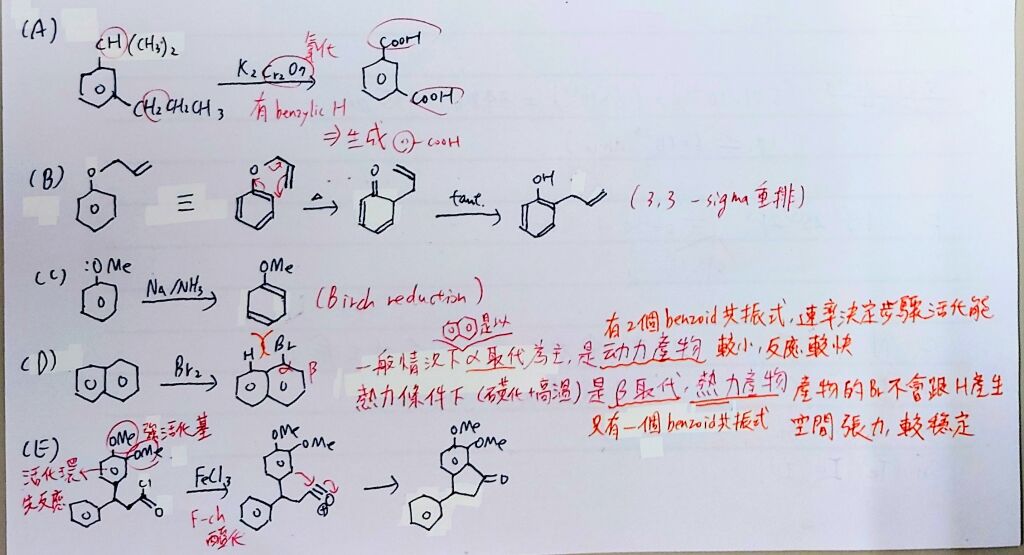 (A)
CH(CH3)2
CH2CH2CH3
K2Cr2O7
氧化
有benzylic H
⇒生成 -COOH
COOH
COOH
(B)
O
≡
O
Δ
O
taut.
OH
(3,3-sigma重排)
(C)
:OMe
Na/NH3
OMe
(Birch reduction)
(D)
Br2
H Br
α β
一般情況下α取代為主,是动力產物
是以
有2個benzoid共振式,速率決定步驟活化能
較小,反應較快
熱力條件下(磺化+高溫)是β取代,熱力產物
只有一個benzoid共振式
產物的Br不會跟H產生
空間張力,較穩定
(E)
OMe 強活化基
OMe
活化環
先反應
Cl
O
FeCl3
F-ch
醯化
OMe
OMe
O
OMe
OMe
O